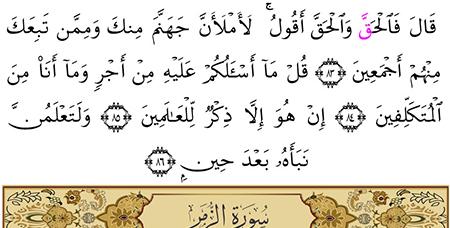 قَالَ فَالْحَقَّ وَالْحَقَّ أَقُولُ ۚ لَأَمْلَأَنَّ جَهَنَّمَ مِنكَ وَمِمَّن تَبِعَكَ
مِنْهُمْ أَجْمَعِينَ ٨٣ قُلْ مَآ أَسْـَٔلُكُمْ عَلَيْهِ مِنْ أَجْرٍ وَمَآ أَنَا۠ مِنَ
الْمُتَكَلِّفِينَ ٨٤ إِنْ هُوَ إِلَّا ذِكْرٌ لِّلْعَٰلَمِينَ ٨٥ وَلَتَعْلَمُنَّ
نَبَأَهُۥ بَعْدَ حِينٍۭ ٨٦
سُورَةُ الزُّمَرِ